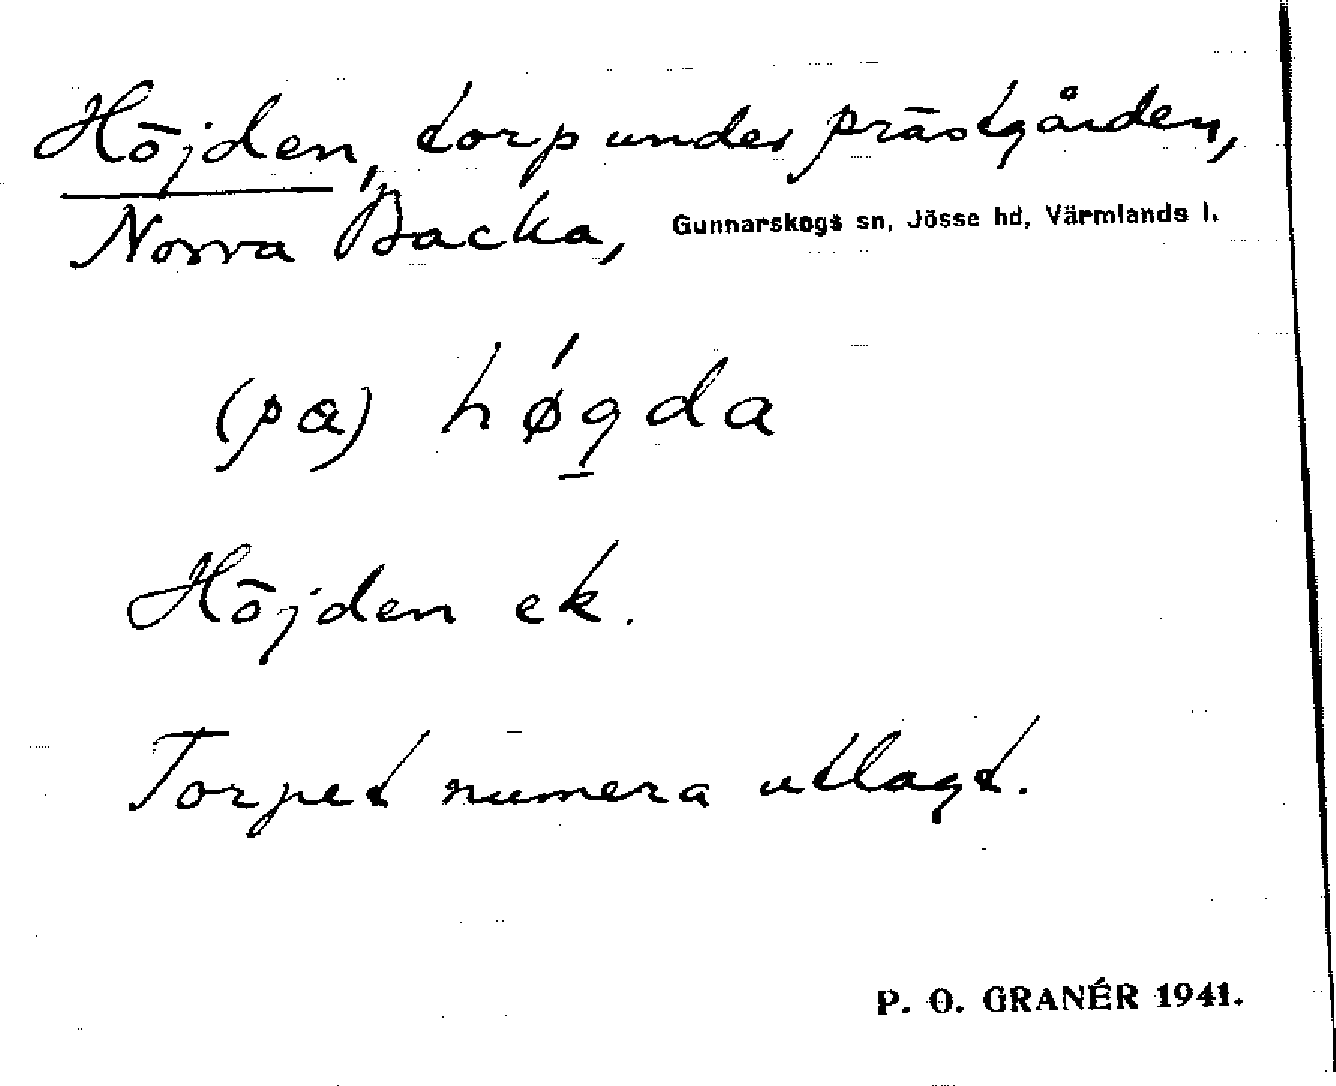 Höjden, torp under prästgården,
Norra Backa, Gunnarskogs sn, Jösse hd, Värmlands l.
(pa) hǿgda
Höjden ek.
Torpet numera utlagt.
P. O. GRANÉR 1941.